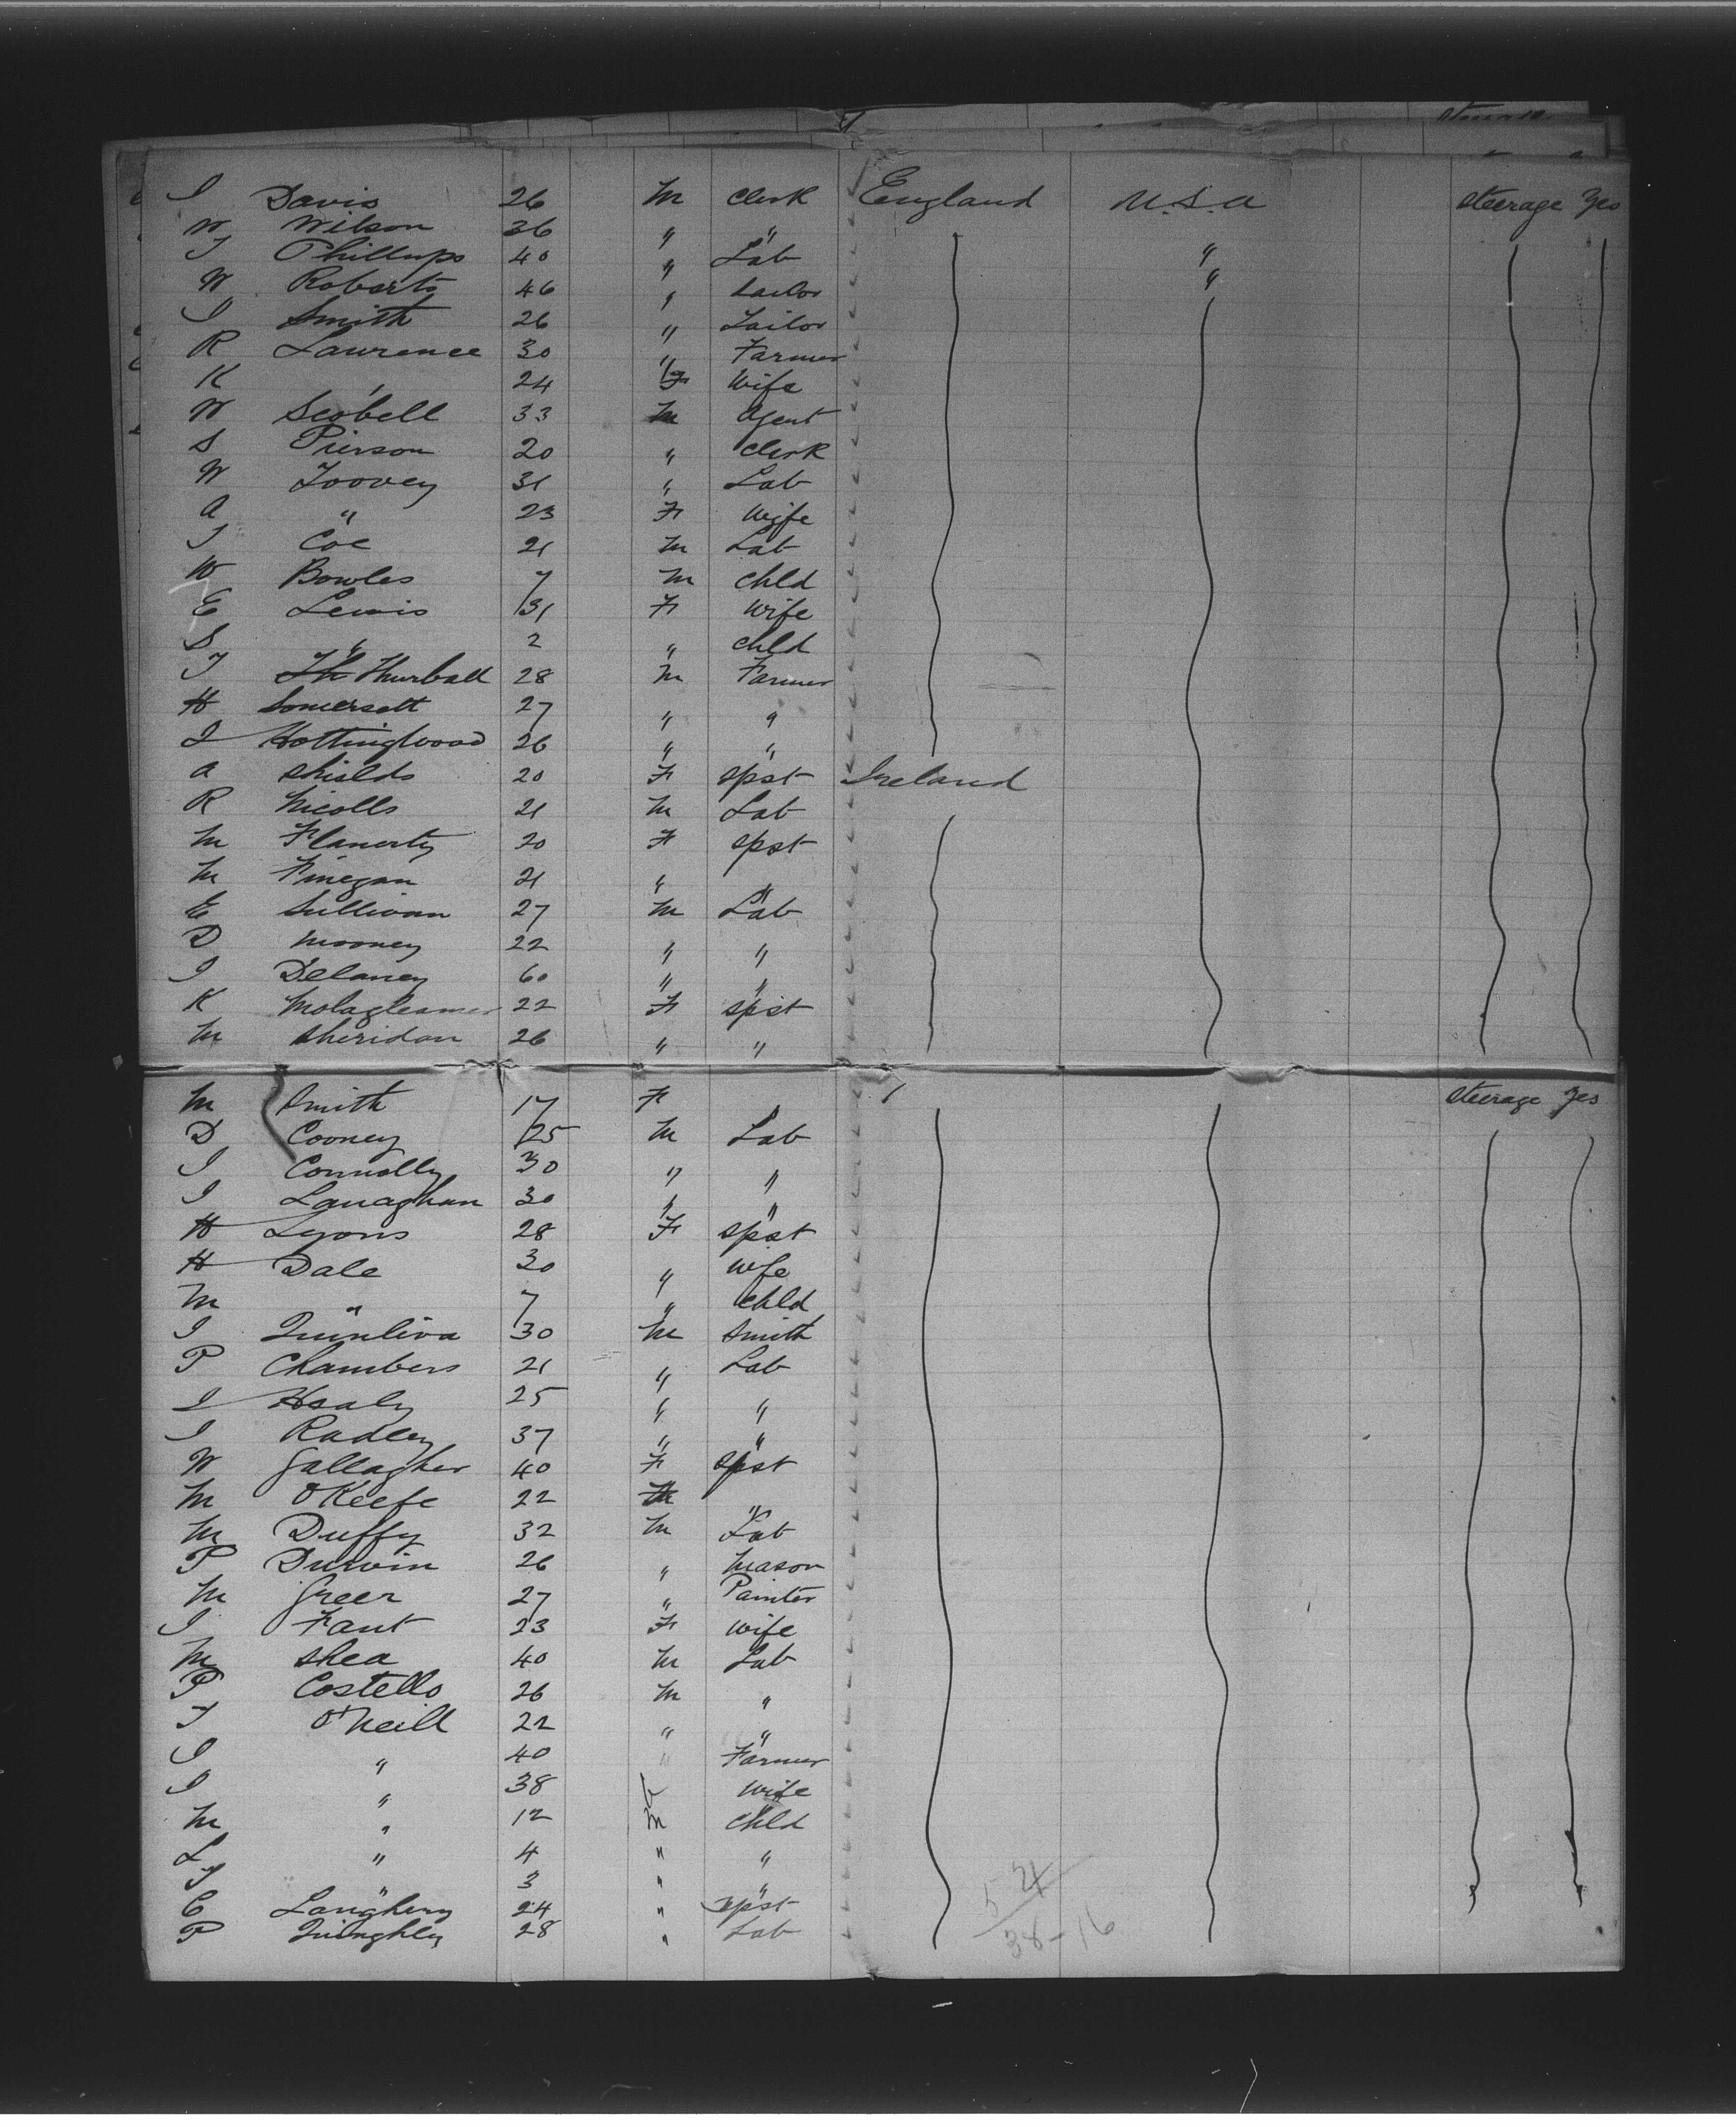 steerage
I Davis 26 M Clerk England U.S.A steerage Yes
W Wilson 36 " "
T Phillups 40 " Lab "
W Robarts 46 " tailor "
I Smith 26 " Tailor
R Lawrence 30 " Farmer
K " 24 F Wife
W Scobell 33 M Agent
S Pierson 20 " Clerk
W Toovey 31 " Lab
A " 23 F Wife
T Coe 21 M Lab
W Bowles 7 M Chld
E Lewis 31 F Wife
S " 2 " Chld
T Th Thurball 28 M Farmer
H Somersett 27 " "
I Hottingwood 26 " "
A Shields 20 F Spst Ireland
R Nicolls 21 M Lab
M Flanerty 20 F Spst
M Finegan 21 " "
E Sullivan 27 M Lab
D Mooney 22 " "
I Delaney 60 " "
K 22 F Spst
M Sheridan 26 " "
M Smith 17 F steerage Yes
D Cooney 25 M Lab
I Connolly 30 " "
I Lanaghan 30 " "
H Lyons 28 F Spst
H Dale 30 " Wife
M " 7 " Chld
I Quinliva 30 M Smith
P Chambers 21 " Lab
I Healy 25 " "
I Radley 37 " "
W Gallagher 40 F Spst
M O'Keefe 22 "
M Duffy 32 M Lab
P Durvin 26 " Mason
M Greer 27 " Painter
I Fant 23 F Wife
M Shea 40 M Lab
P Costello 26 M "
T O'Neill 22 " "
I " 40 " Farmer
I " 38 F Wife
M " 12 M Chld
L " 4 " "
T " 3 " "
C Langhery 24 " Spst
P 28 " Lab
54
38-16